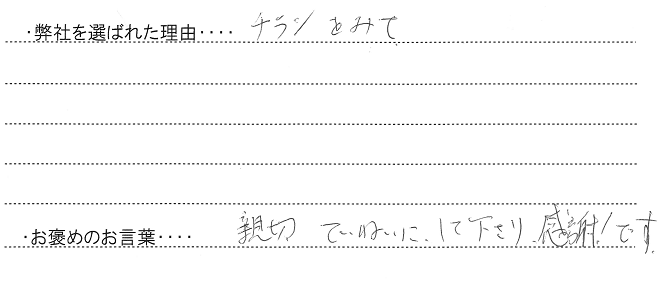 ・弊社を選ばれた理由････ チラシをみて
・お褒めのお言葉････ 親切 ていねいに、して下さり、感謝!です